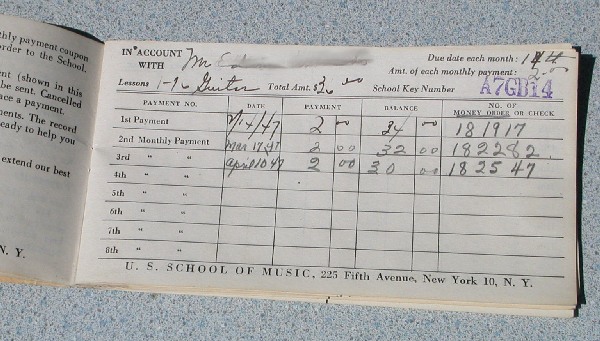 nthly payment coupon
order to the School.
ent (shown in this
be sent. Cancelled
ace a payment.
ments. The record
eady to help you
extend our best
N. Y.
IN ACCOUNT WITH Mr Ed Due date each month: 14
Amt. of each monthly payment: 2.00
Lessons 1-96 Guitar Total Amt. 36 00 School Key Number A7GB14
PAYMENT NO. DATE PAYMENT BALANCE NO. OF MONEY ORDER OR CHECK
1st Payment 2/14/47 2 00 34 00 181917
2nd Monthly Payment Mar 17 47 2 00 32 00 182282
3rd " " April 10 47 2 00 30 00 182547
4th " "
5th " "
6th " "
7th " "
8th " "
U. S. SCHOOL OF MUSIC, 225 Fifth Avenue, New York 10, N. Y.